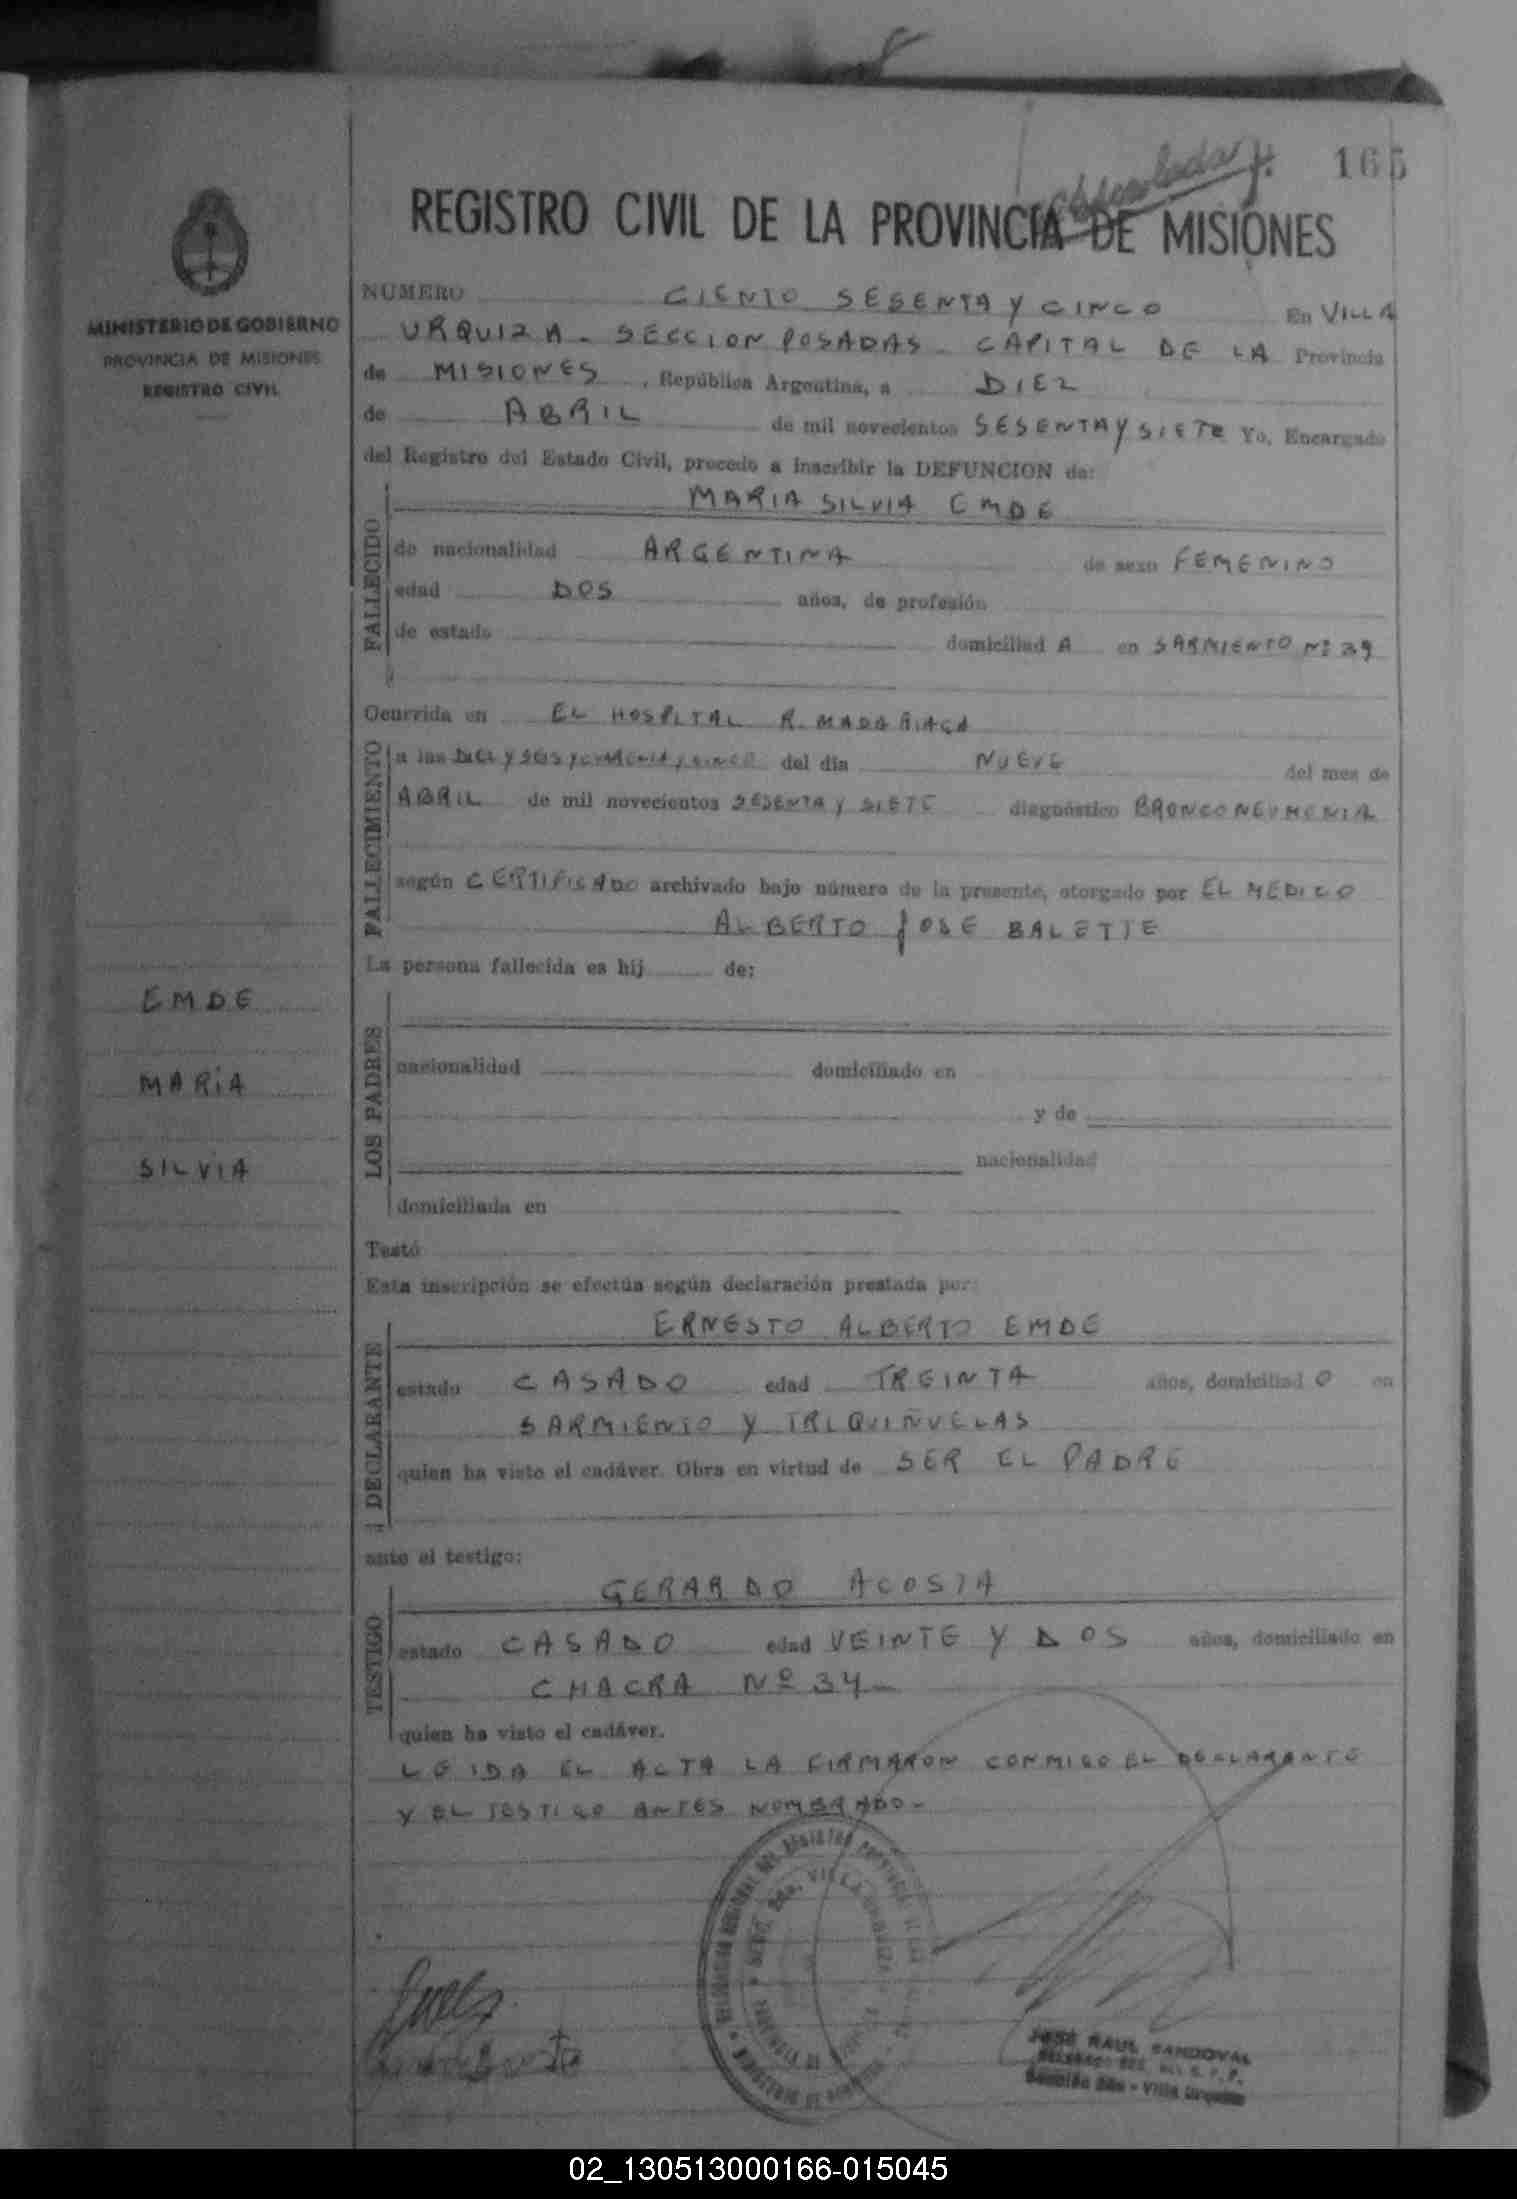 165
REGISTRO CIVIL DE LA PROVINCIA DE MISIONES
MINISTERIO DE GOBIERNO
PROVINCIA DE MISIONES
REGISTRO CIVIL
NUMERO CIENTO SESENTA Y CINCO En VILLA
URQUIZA - SECCION POSADAS - CAPITAL DE LA Provincia
de MISIONES, República Argentina, a DIEZ
de ABRIL de mil novecientos SESENTA Y SIETE Yo, Encargado
del Registro del Estado Civil, procedo a inscribir la DEFUNCION de:
MARIA SILVIA EMDE
FALLECIDO
de nacionalidad ARGENTINA de sexo FEMENINO
edad DOS años, de profesión
de estado domiciliad A en SARMIENTO Nº 39
Ocurrida en EL HOSPITAL R. MADARIAGA
FALLECIMIENTO
a las DIEZ Y SEIS Y CUARENTA Y CINCO del día NUEVE del mes de
ABRIL de mil novecientos SESENTA Y SIETE diagnóstico BRONCONEUMONIA
según CERTIFICADO archivado bajo número de la presente, otorgado por EL MEDICO
ALBERTO JOSE BALETTE
La persona fallecida es hij de:
EMDE
MARÍA
SILVIA
LOS PADRES
nacionalidad domiciliado en
y de
nacionalidad
domiciliada en
Testó
Esta inscripción se efectúa según declaración prestada por:
ERNESTO ALBERTO EMDE
DECLARANTE
estado CASADO edad TREINTA años, domiciliad O en
SARMIENTO Y TRIQUIÑUELAS
quien ha visto el cadáver. Obra en virtud de SER EL PADRE
ante el testigo:
GERARDO ACOSTA
TESTIGO
estado CASADO edad VEINTE Y DOS años, domiciliado en
CHACRA Nº 34
quien ha visto el cadáver.
LEIDA EL ACTA LA FIRMARON CONMIGO EL DECLARANTE
Y EL TESTIGO ANTES NOMBRADO-
JOSÉ RAUL SANDOVAL
Sección 2da - Villa Urquiza
02_130513000166-015045